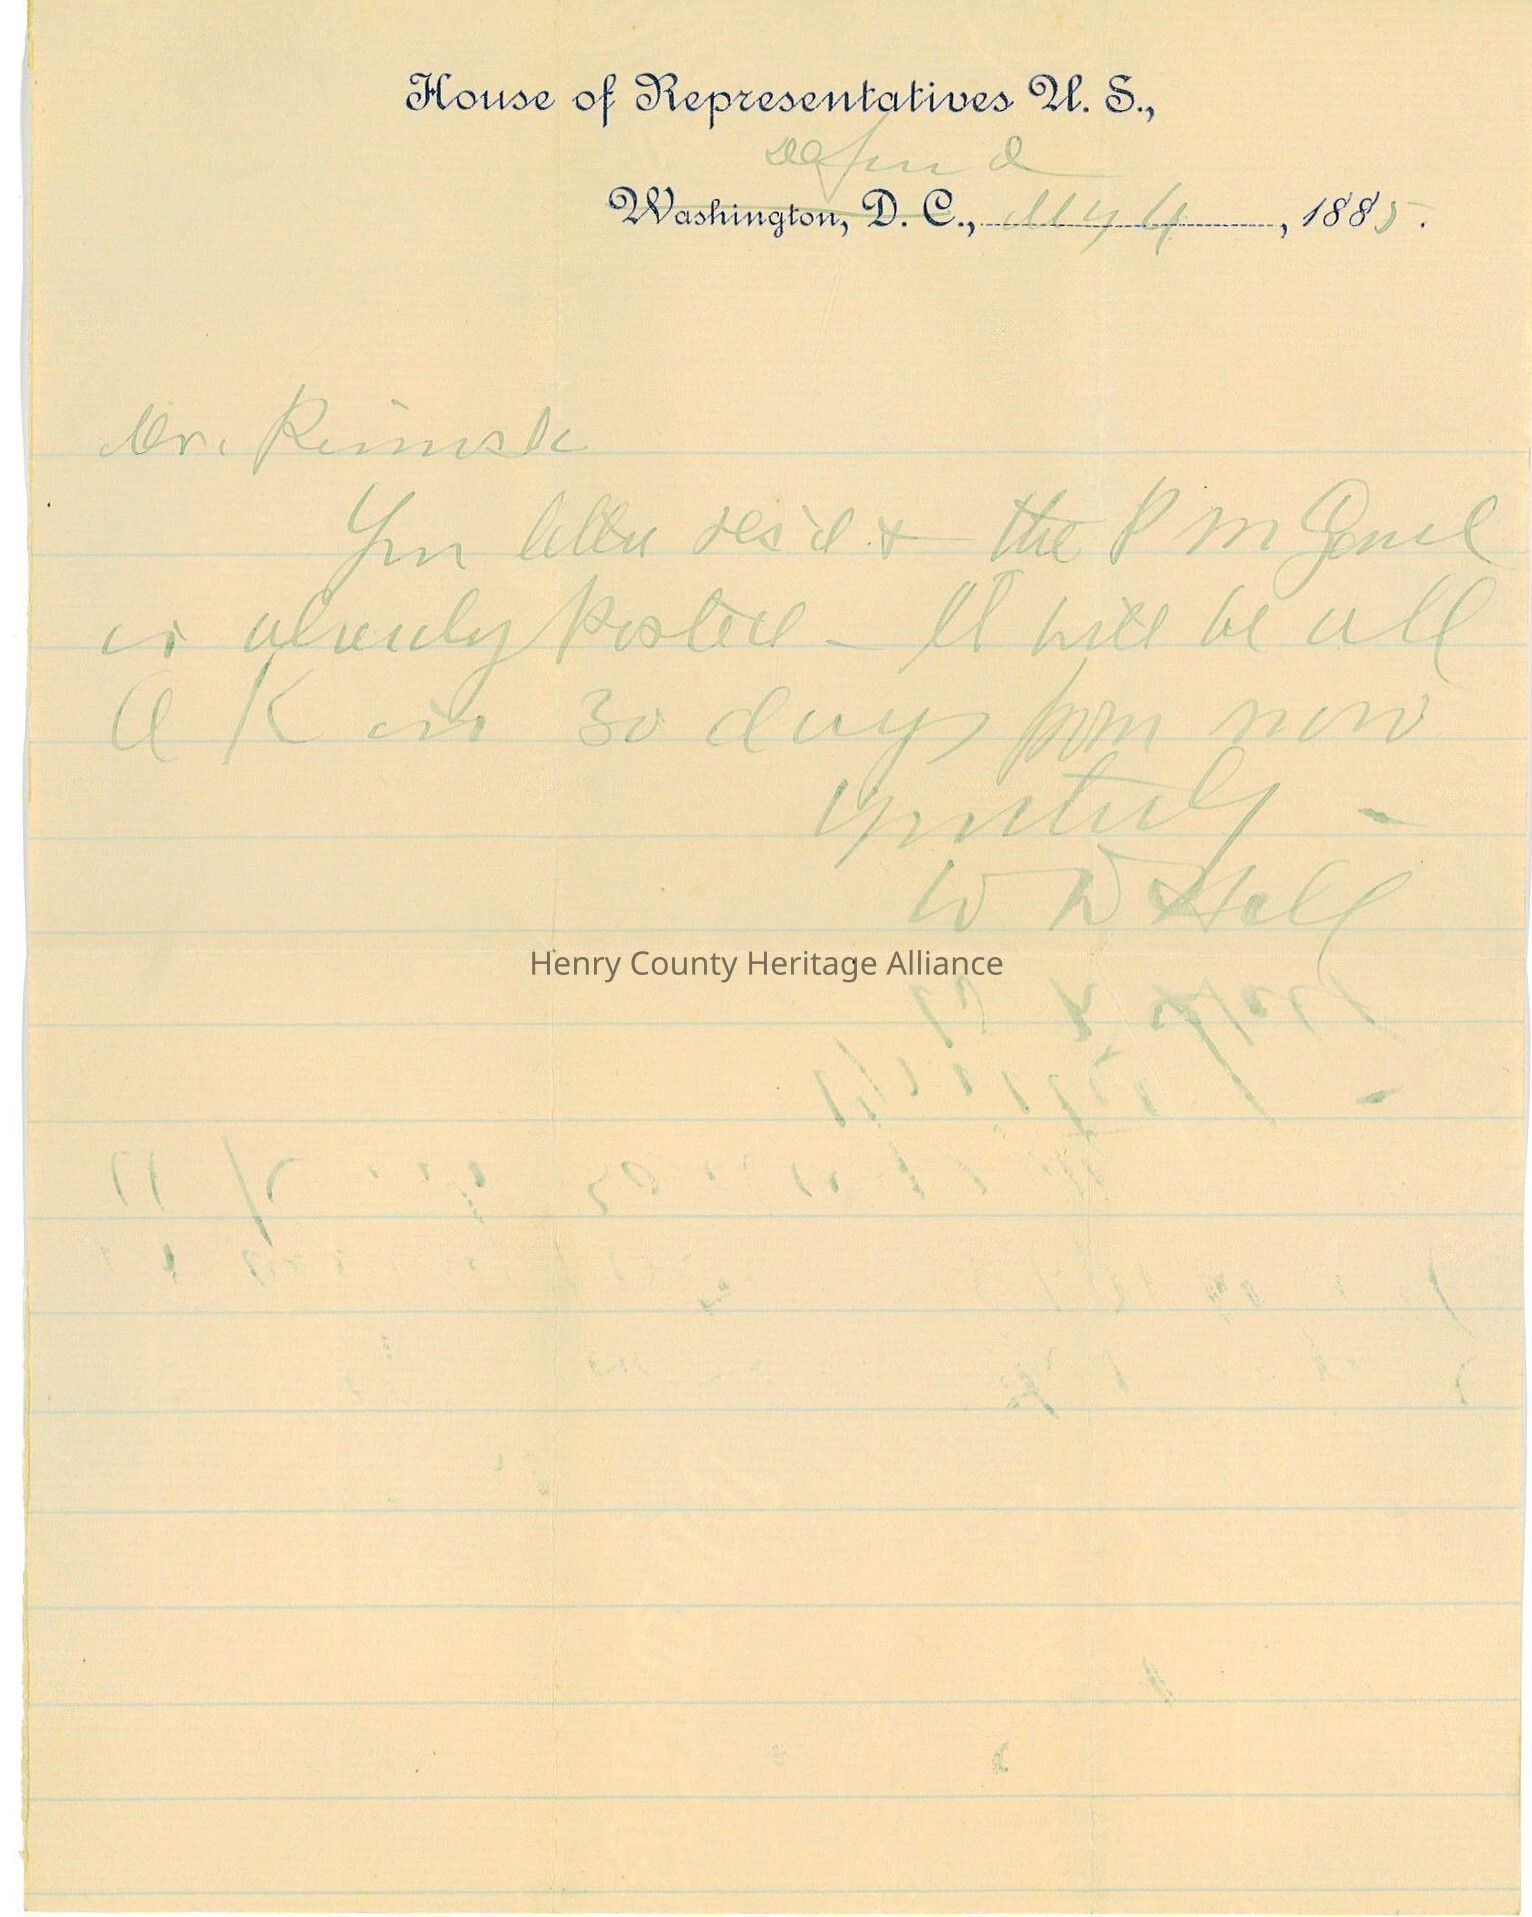 House of Representatives U. S.,
Washington, D. C., My 4, 1885.
Mr.
Your letter rec'd & the P M Genel
is already Posted – It will be all
O K in 30 days from now
yours truly –
W D Hill
Henry County Heritage Alliance